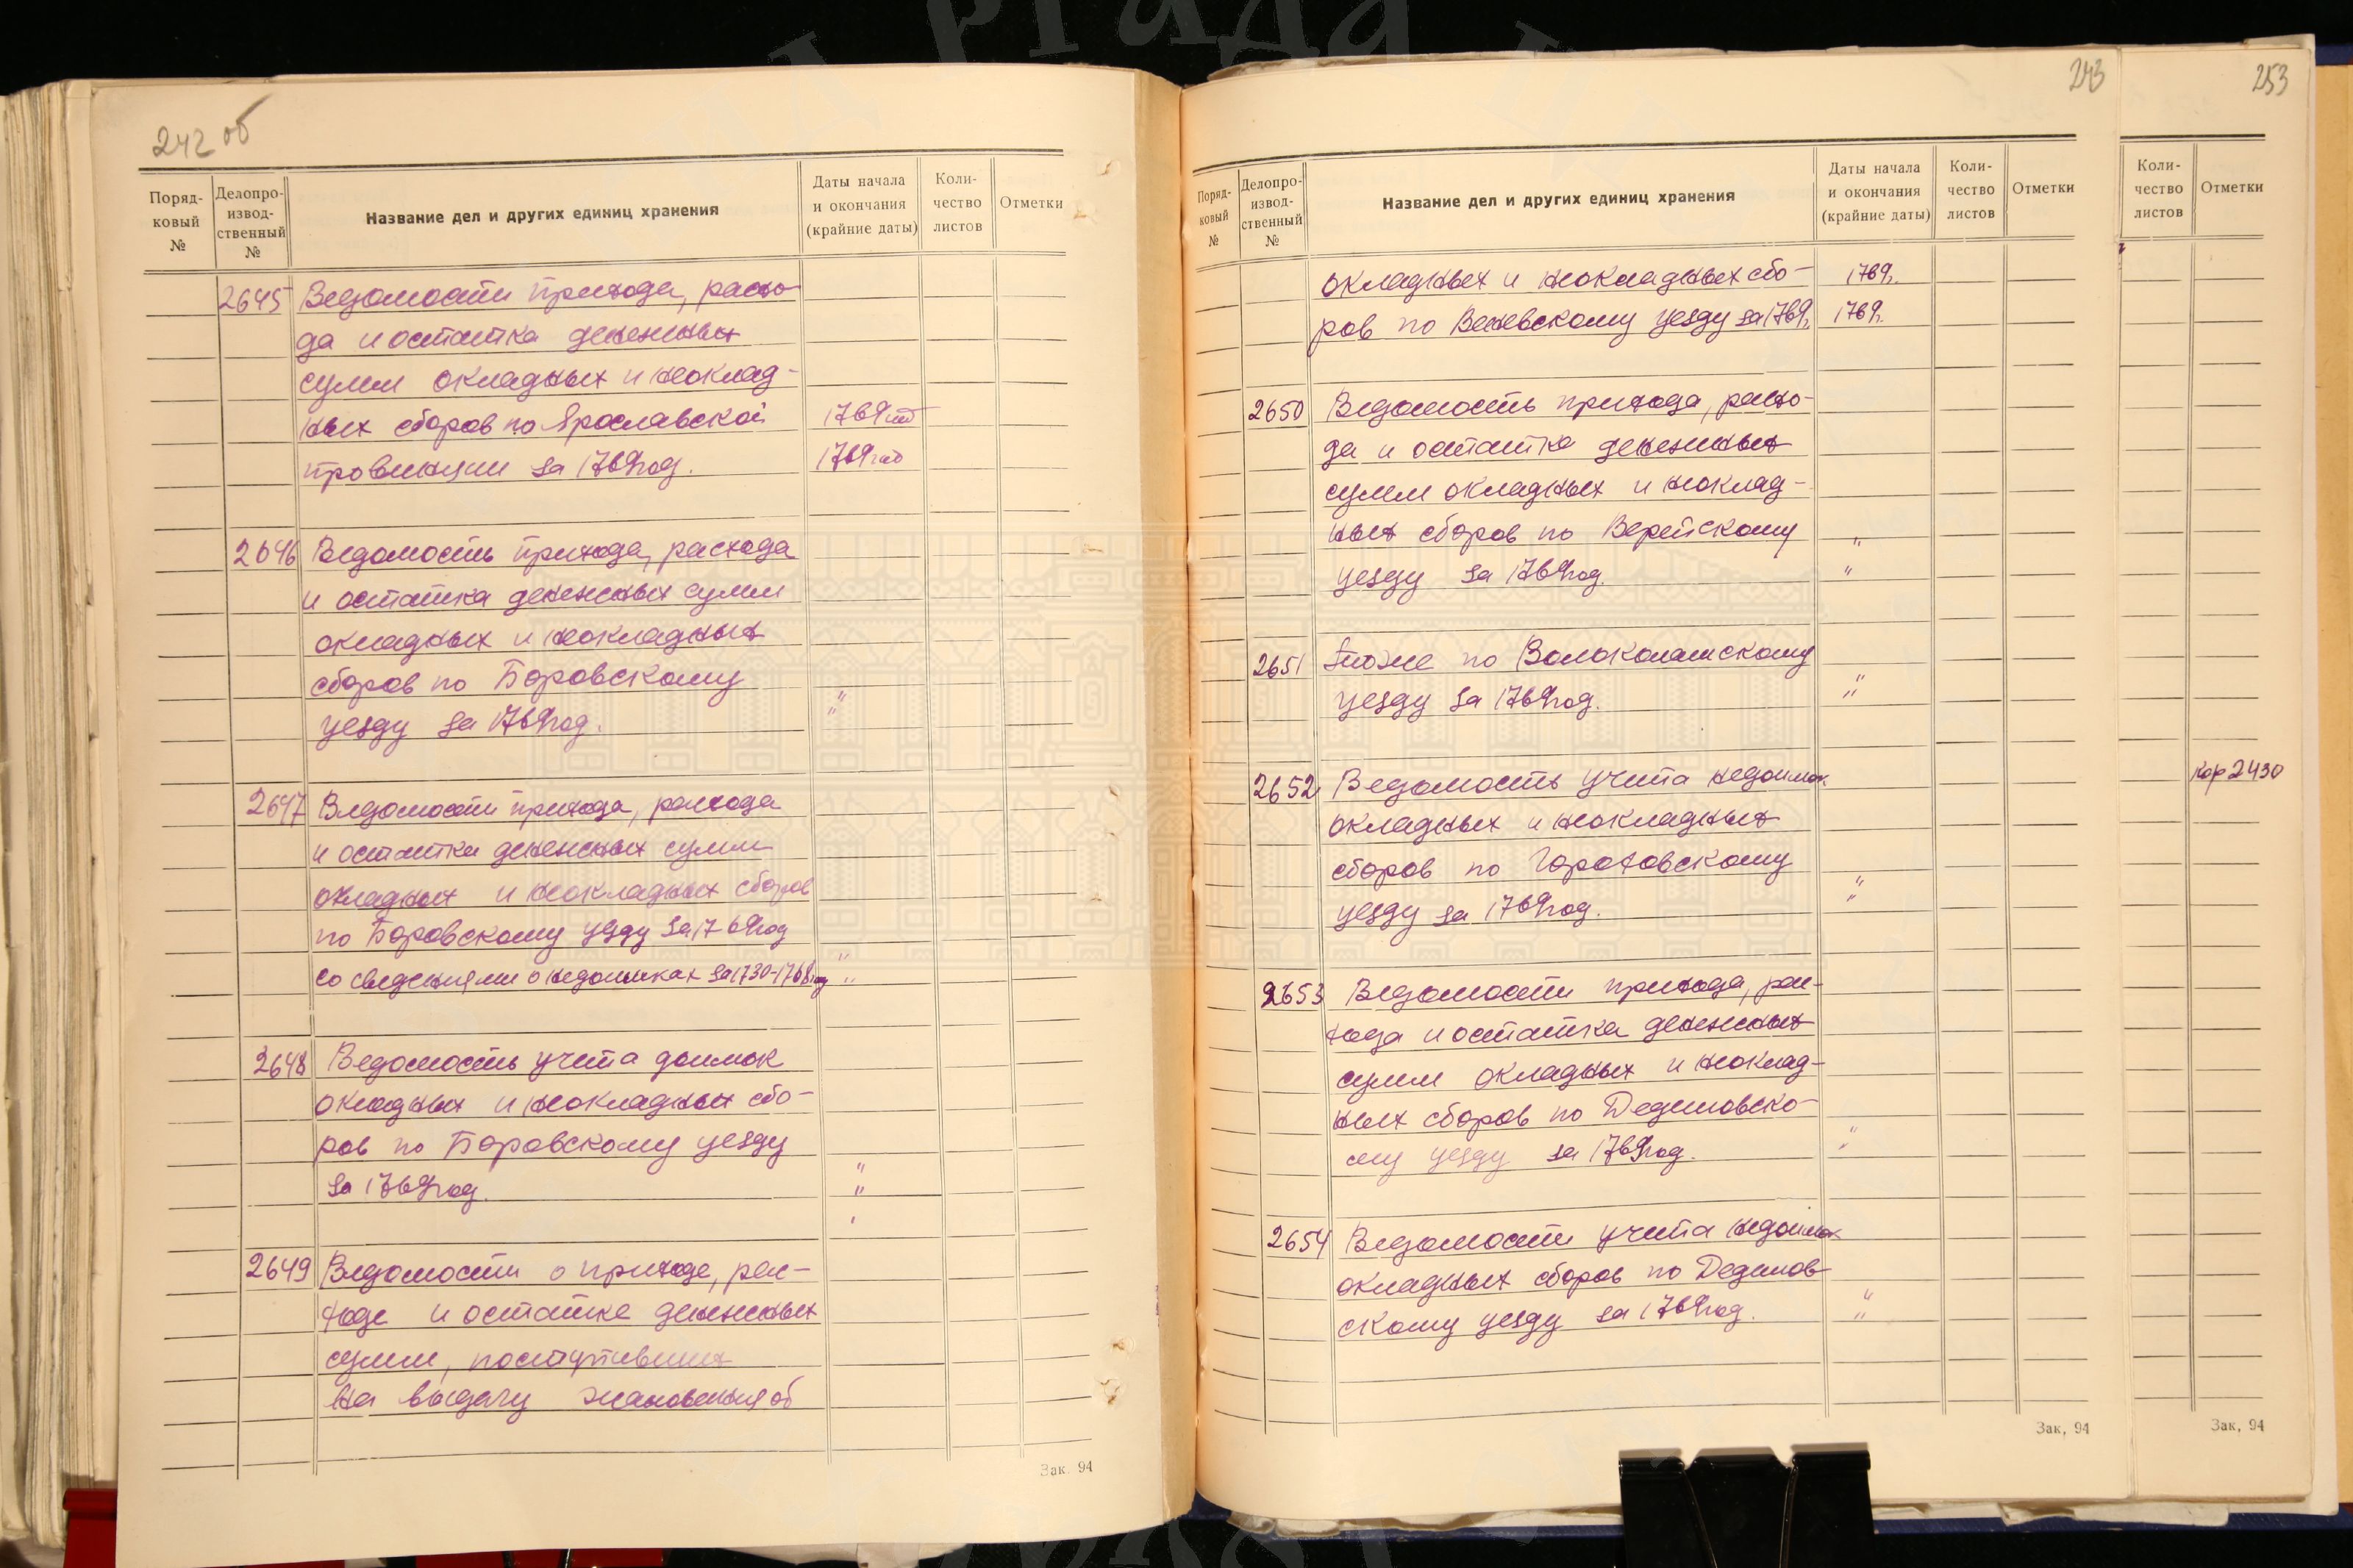 242 об
Поряд-
ковый
№
Делопро-
извод-
ственный
№
Название дел и других единиц хранения
Даты начала
и окончания
(крайние даты)
Коли-
чество
листов
Отметки
2645 Ведомости прихода, расхо-
да и остатка денежных
сумм окладных и неоклад-
ных сборов по Ярославской 1769 год
провинции за 1769 год. 1769 год
2646 Ведомость прихода, расхода
и остатка денежных сумм
окладных и неокладных
сборов по Боровскому "
уезду за 1769 год. "
2647 Ведомости прихода, расхода
и остатка денежных сумм
окладных и неокладных сборов
по Боровскому уезду за 1769 год "
со сведениями о недоимках за 1730-1768 год "
2648 Ведомость учета доимок
окладных и неокладных сбо-
ров по Боровскому уезду "
за 1769 год. "
2649 Ведомости о приходе, рас-
ходе и остатке денежных
сумм, поступивших
на выдачу жалованья об
Зак. 94
243
Поряд-
ковый
№
Делопро-
извод-
ственный
№
Название дел и других единиц хранения
Даты начала
и окончания
(крайние даты)
Коли-
чество
листов
Отметки
окладных и неокладных сбо- 1769г.
ров по Веневскому уезду за 1769г. 1769г.
2650 Ведомость прихода, расхо-
да и остатка денежных
сумм окладных и неоклад-
ных сборов по Верейскому "
уезду за 1769 год. "
2651 Тоже по Волоколамскому "
уезду за 1769 год. "
2652 Ведомость учета недоимок
окладных и неокладных
сборов по Гороховскому "
уезду за 1769 год. "
2653 Ведомости прихода, рас-
хода и остатка денежных
сумм окладных и неоклад-
ных сборов по Дедиловско- "
му уезду за 1769 год. "
2654 Ведомости учета недоимок
окладных сборов по Дедилов- "
скому уезду за 1769 год. "
Зак, 94
253
Коли-
чество
листов
Отметки
кор 2430
Зак, 94